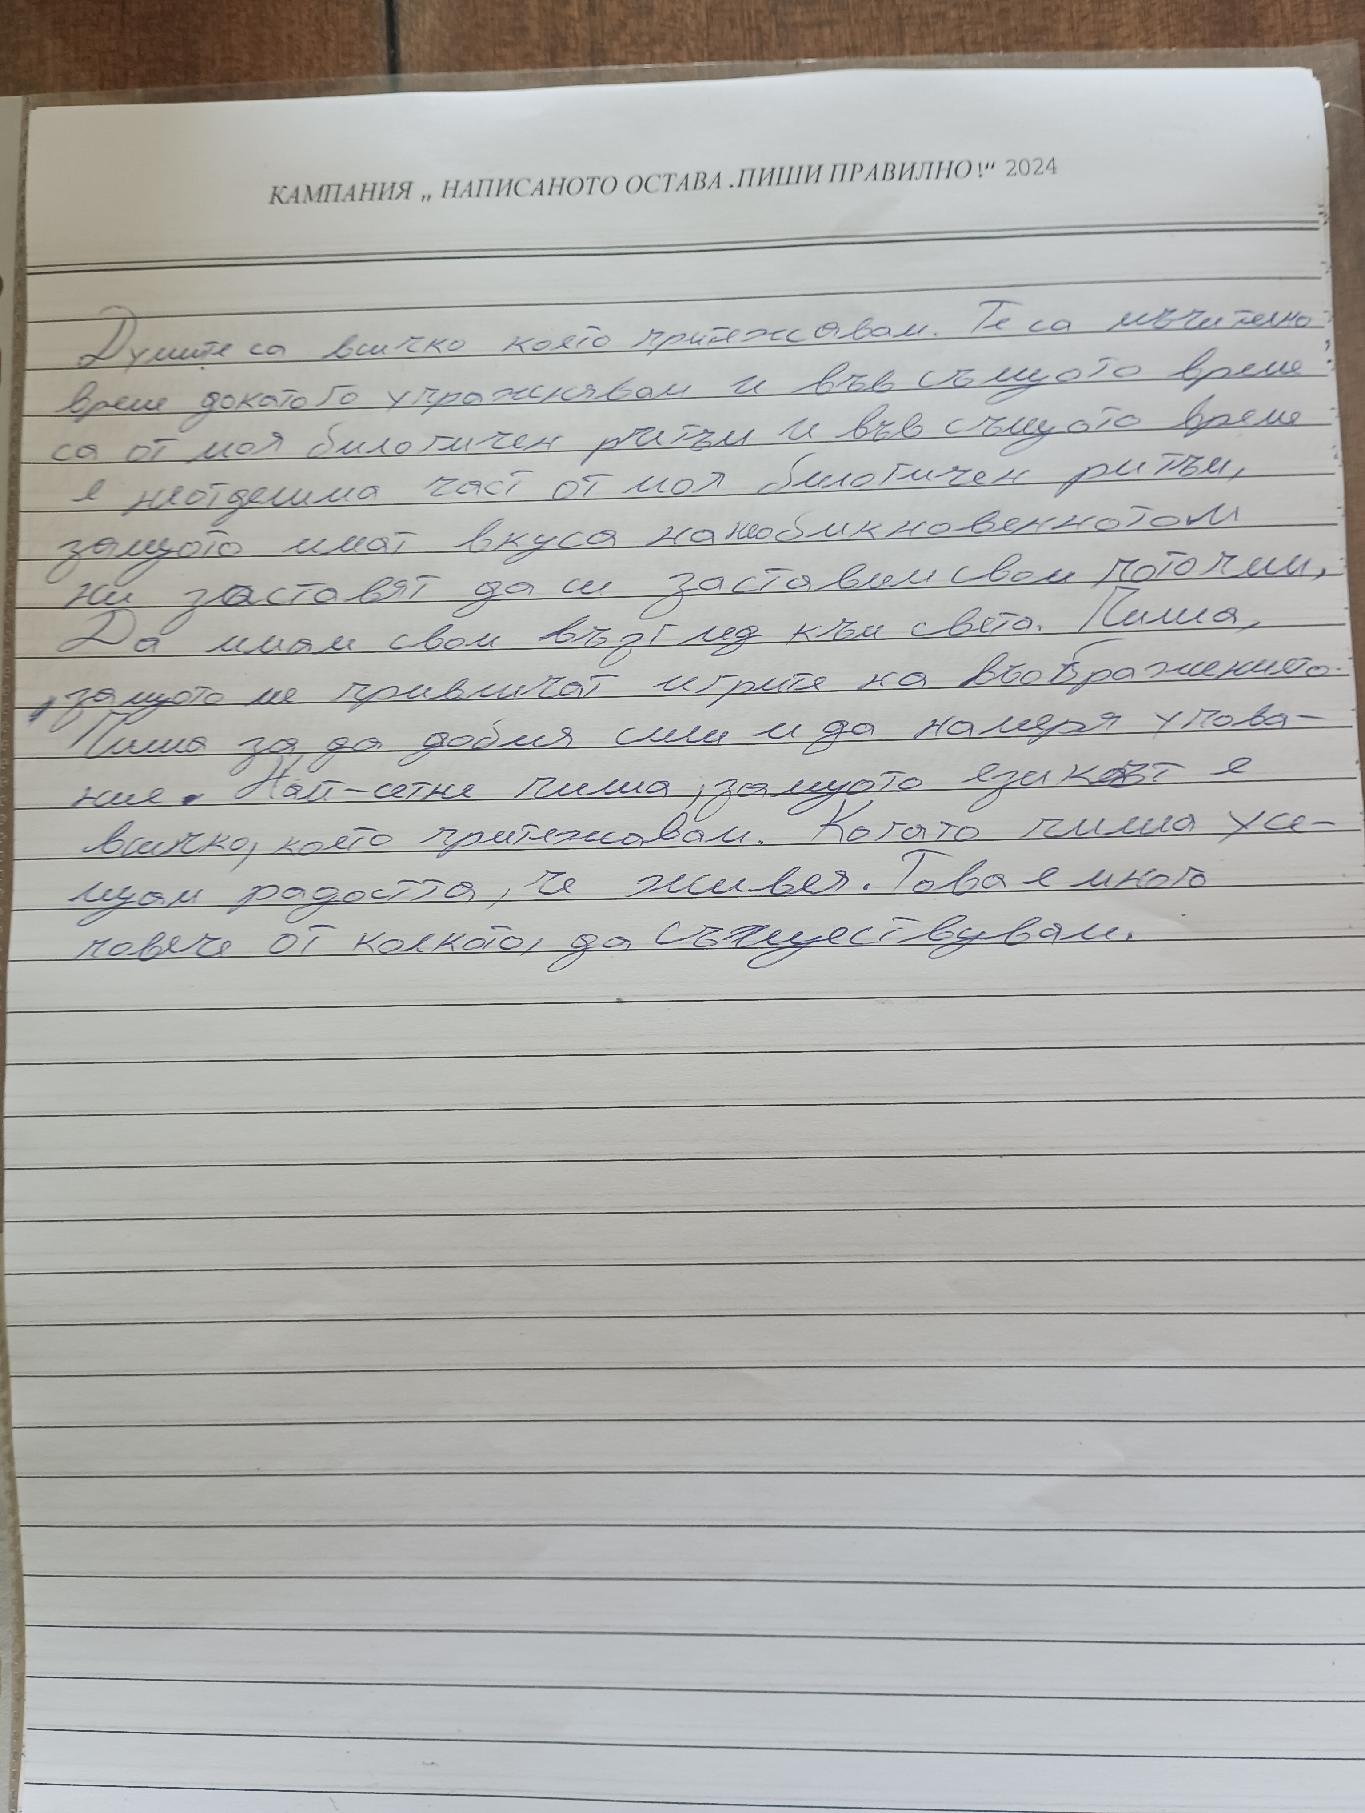 КАМПАНИЯ „ НАПИСАНОТО ОСТАВА .ПИШИ ПРАВИЛНО!“ 2024
Думите са всичко което притежавам. Те са мъчително
време докато го упражнявам и във същото време
са от моя биологичен ритъм и във същото време
е неотделима част от моя биологичен ритъм,
защото имат вкуса на необикновеното
ни заставят да си заставим свои
Да имам свои възглед към света. Пиша,
защото ме привличат игрите на въображението.
Пиша за да добия сили и да намеря упова-
ние. Най-сетне пиша, защото езикът е
всичко, което притежавам. Когато пиша усе-
щам радостта, че живея. Това е много
повече от колкото, да съществувам.